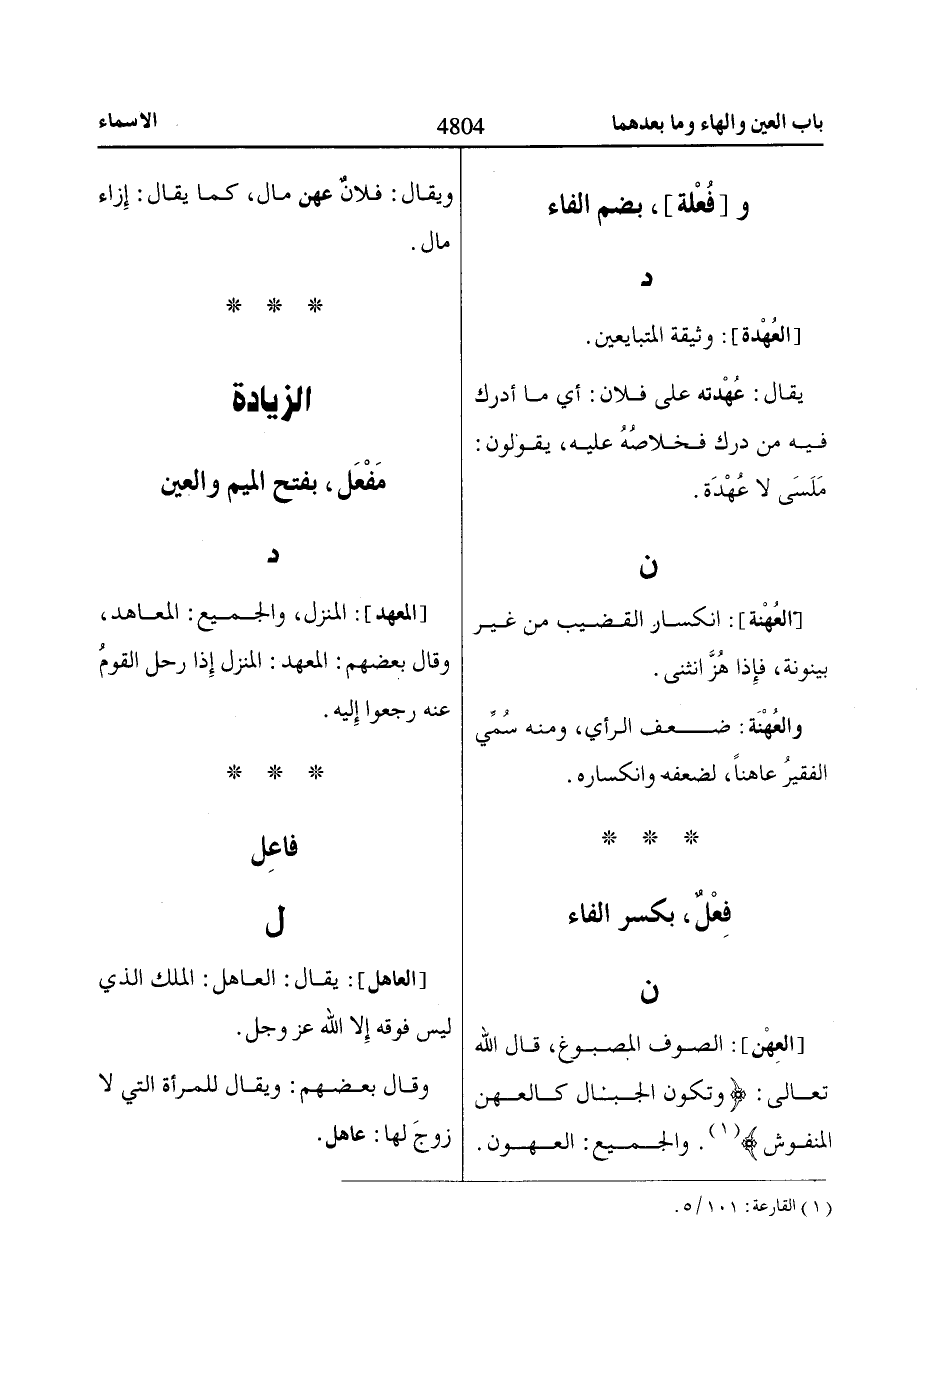 باب العين والهاء وما بعدهما
4804
الاسماء
و [فُعْلة]، بضم الفاء
د
[العُهْدة]: وثيقة المتبايعين.
يقال: عُهْدته على فلان: أي ما أدرك
فيه من درك فخلاصُهُ عليه، يقولون:
مَلَسَى لا عُهْدَة.
ن
[العُهْنة]: انكسار القضيب من غير
بينونة، فإذا هُزَّ انثنى.
والعُهْنَة: ضعف الرأي، ومنه سُمِّي
الفقيرُ عاهناً، لضعفه وانكساره.
* * *
فِعْلٌ، بكسر الفاء
ن
[العِهْن]: الصوف المصبوغ، قال الله
تعالى: ﴿وتكون الجبال كالعهن
المنفوش﴾(١). والجميع: العهون.
ويقال: فلانٌ عهن مال، كما يقال: إزاء
مال.
* * *
الزيادة
مَفْعَل، بفتح الميم والعين
د
[المعهد]: المنزل، والجميع: المعاهد،
وقال بعضهم: المعهد: المنزل إذا رحل القومُ
عنه رجعوا إليه.
* * *
فاعِل
ل
[العاهل]: يقال: العاهل: الملك الذي
ليس فوقه إلا الله عز وجل.
وقال بعضهم: ويقال للمرأة التي لا
زوجَ لها: عاهل.
(١) القارعة: ١٠١/ ٥.